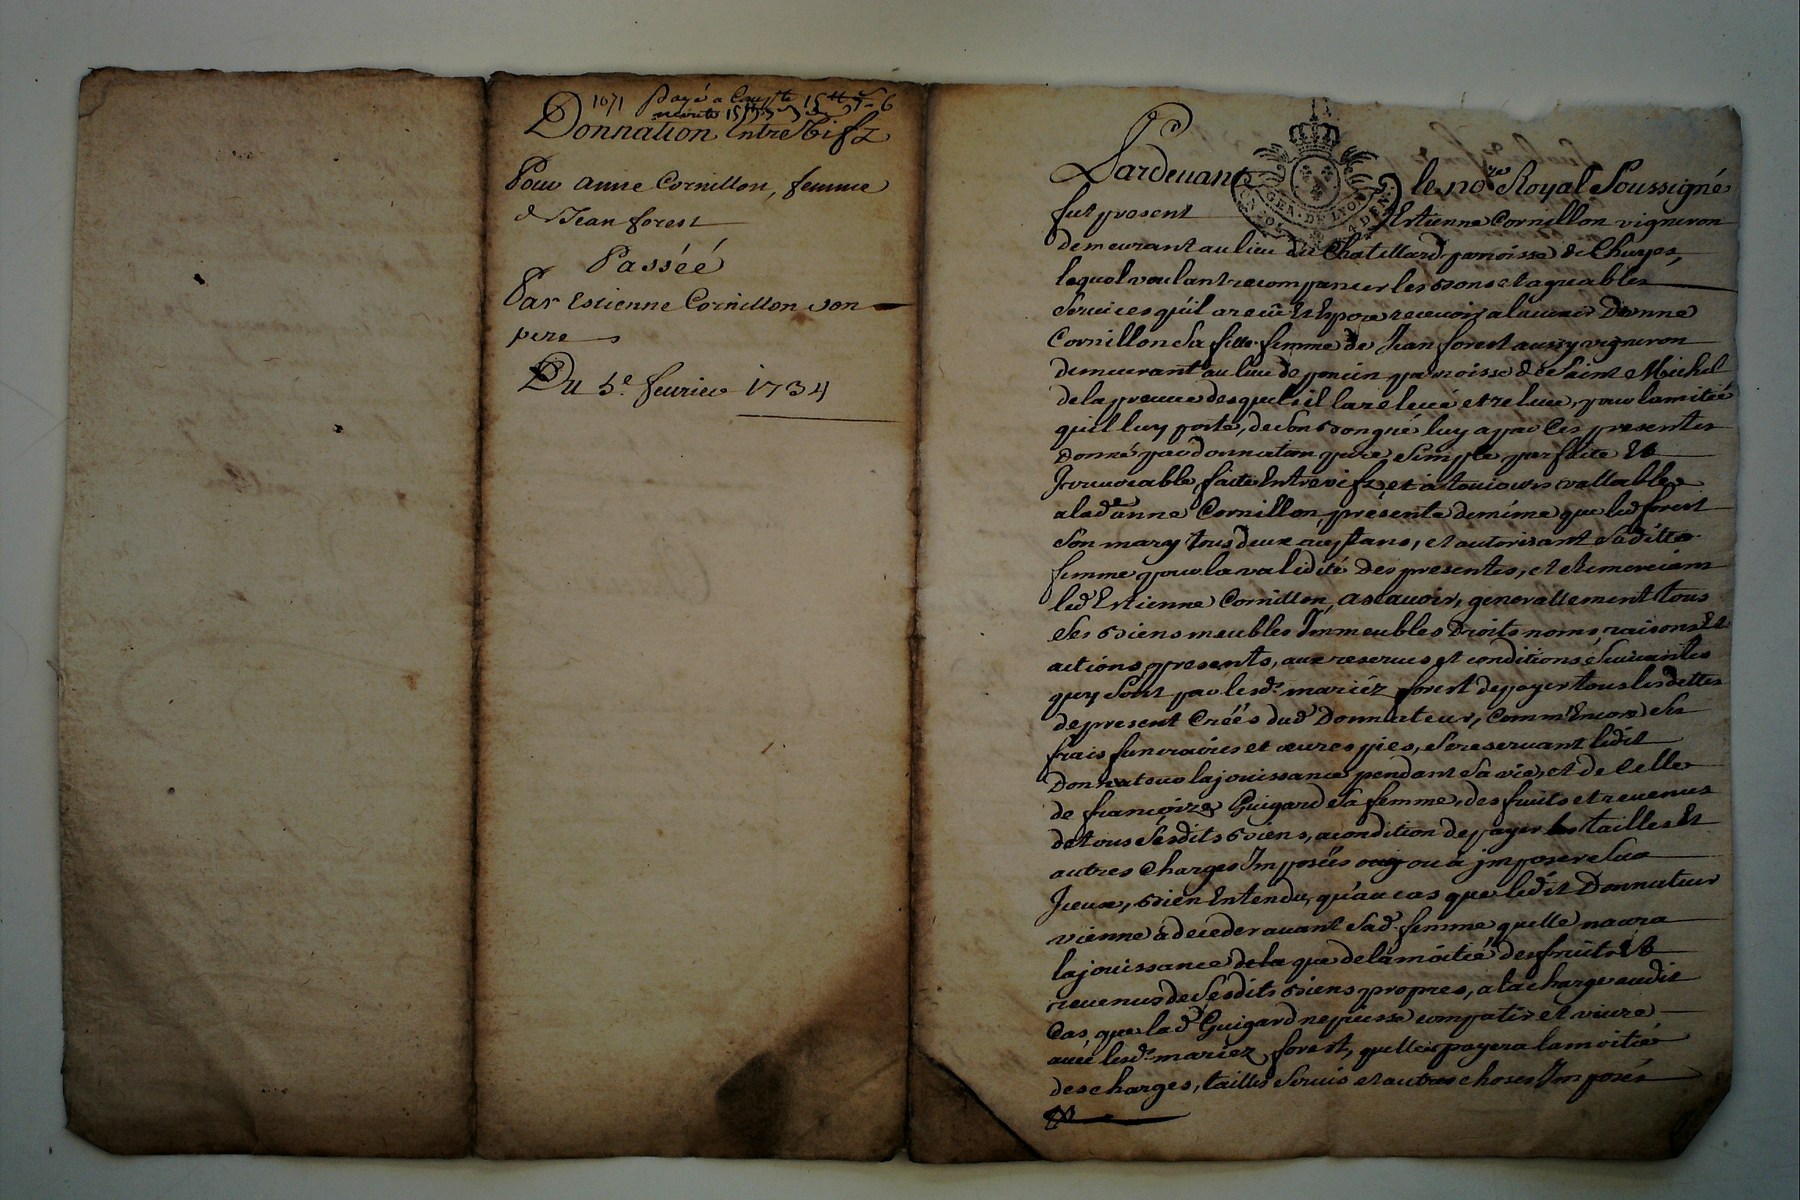 1071 payé a Compte 15
Donnation Entre Vifz
Pour anne Cornillon, femme
d Jean forest
Passéé
Par Estienne Cornillon son
pere
Du 5e. feurier 1734
Pardeuant le no.re Royal Soussigné
GEN. DE LYON
fut present Estienne Cornillon vigneron
demeurant au lieu du Chatillard paroisse de Chuyes,
lequel voulant recompancer les bons et agreables
Seruices qu'il a receu Et Espere receuoir a lauenir Danne
Cornillon Sa fille femme de Jean forest aussy vigneron
demeurant au lieu de poncin paroisse de Saint Michel
de la preuue desquels il la releué et releue, pour lamitié
quil luy porte, de Son bon gré luy a par Ces presentes
donné par donnation pure Simple parfaite Et
Irreuocable, faite Entre vifz, et a toujours vallable
a lad. anne Cornillon, présente de mème que led forest
Son mary tous deux aceptans, et autorisant Saditte
femme pour la validité Des presentes, et Remerciant
led Estienne Cornillon, ascauoir, generallement tous
Ses biens meubles Immeubles Droits noms, raisons Et
actions, presents, aux reserues et conditions Suiuantes
quy Sont par lesd. mariéz forest de payer tous les dettes
de present Créés dud Donnateur, comm'Encore Ses
frais funeraires et œuures pies, Se reseruant ledit
Donnateur la jouissance pendant Sa vie, et de Celle
de françoize Guigard Sa femme, des fruits et reuenus
de tous Sesdits biens, a condition de payer les tailles Et
autres Charges Imposées ou à imposer Sur
Iceux, bien Entendu, qu'au cas que ledit Donnateur
vienne à deceder auant Sad. femme quelle naura
la jouissance que de la moitié des fruits Et
reuenus de Sesdits biens propres, a la charge audit
Cas, que lad Guigard ne puisse compatir et viure
auec lesd. mariez forest, quelle payera la moitié
des charges, tailles Seruis et autres choses Imposés